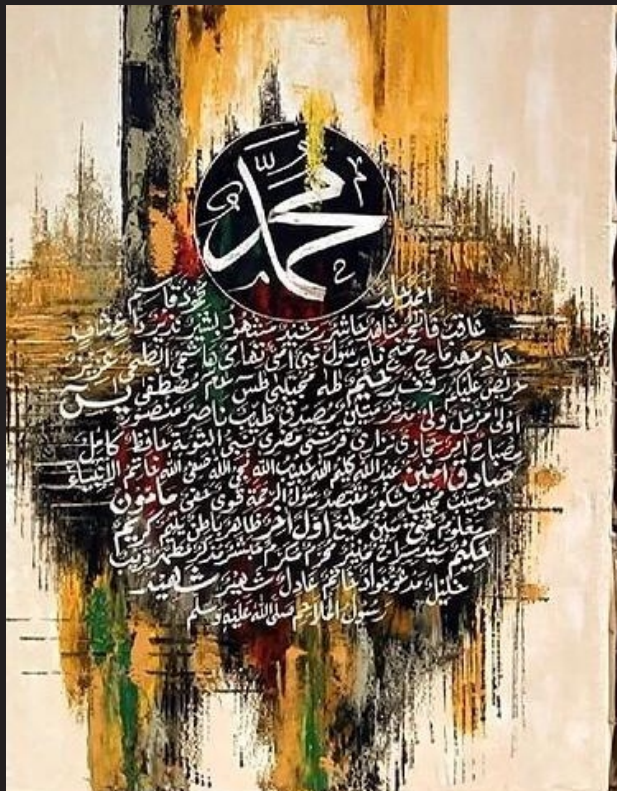 محمد
أحمد حامد محمود قاسم
عاقب فاتح شاهد حاشر رشيد مشهود بشير نذير داع شاف
هاد مهد ماح منج ناه رسول نبي أمي تهامي هاشمي أبطحي عزيز
حريص عليكم رؤف رحيم طه مجتبى طس حم مصطفى يس
أولى مزمل ولي مدثر متين مصدق طيب ناصر منصور
مصباح آمر حجازي نزاري قرشي مضري نبي التوبة حافظ كامل
صادق أمين عبد الله كليم الله حبيب الله نجي الله صفي الله خاتم الأنبياء
حسيب مجيب شكور مقتصد رسول الرحمة قوي حفي مأمون
معلوم حق مبين مطيع أول آخر ظاهر باطن يتيم كريم
حكيم سيد سراج منير محرم مكرم مبشر مذكر مطهر قريب
خليل مدعو جواد خاتم عادل شهير شهيد
رسول الملاحم صلى الله عليه وسلم